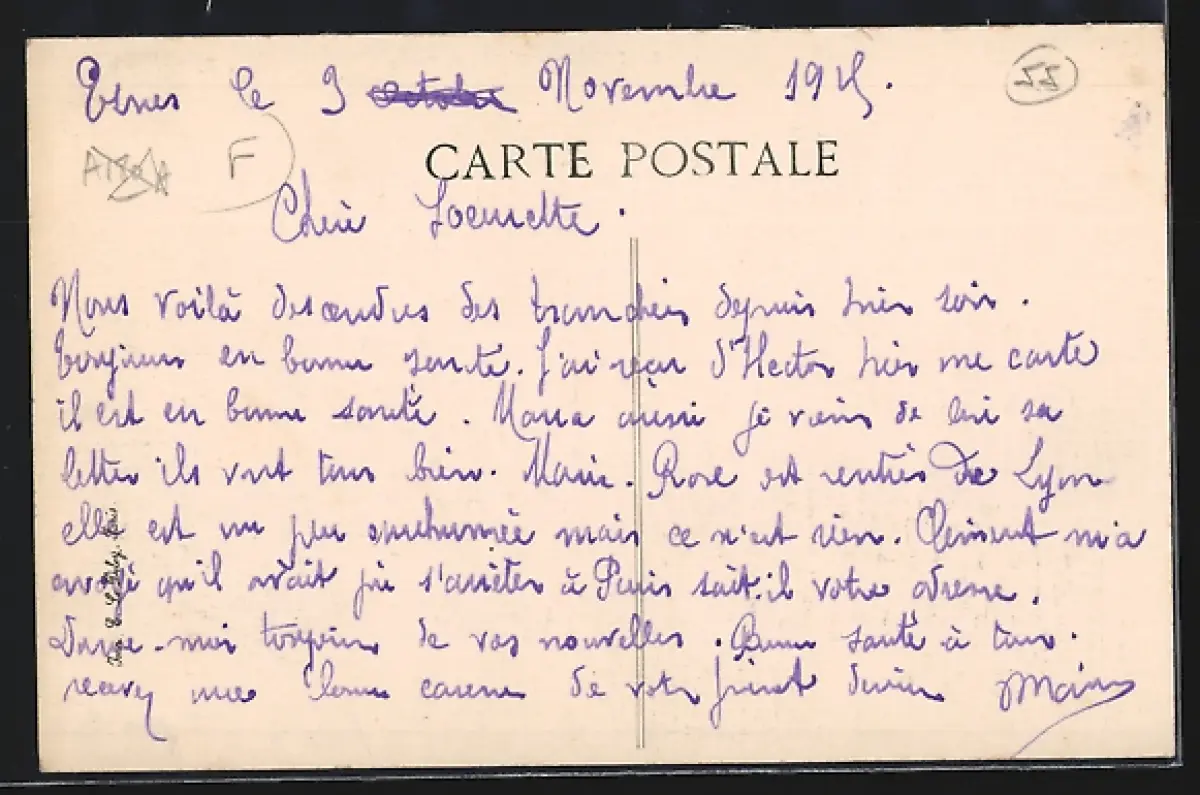 Esnes le 3 Octobre Novembre 1915.
55
F
CARTE POSTALE
Chère
Nous voilà descendus des tranchées depuis hier soir.
Toujours en bonne santé. J'ai reçu d'Hector hier une carte
il est en bonne santé. aussi je viens de lui sa
lettre ils vont tous bien. Marie. Rose est rentrée de Lyon
elle est un peu enrhumée mais ce n'est rien. Clément m'a
qu'il avait pu s'arrêter à Paris sait-il votre adresse.
Donne-moi toujours de vos nouvelles. Bonne santé à tous.
recevez une bonne caresse de votre